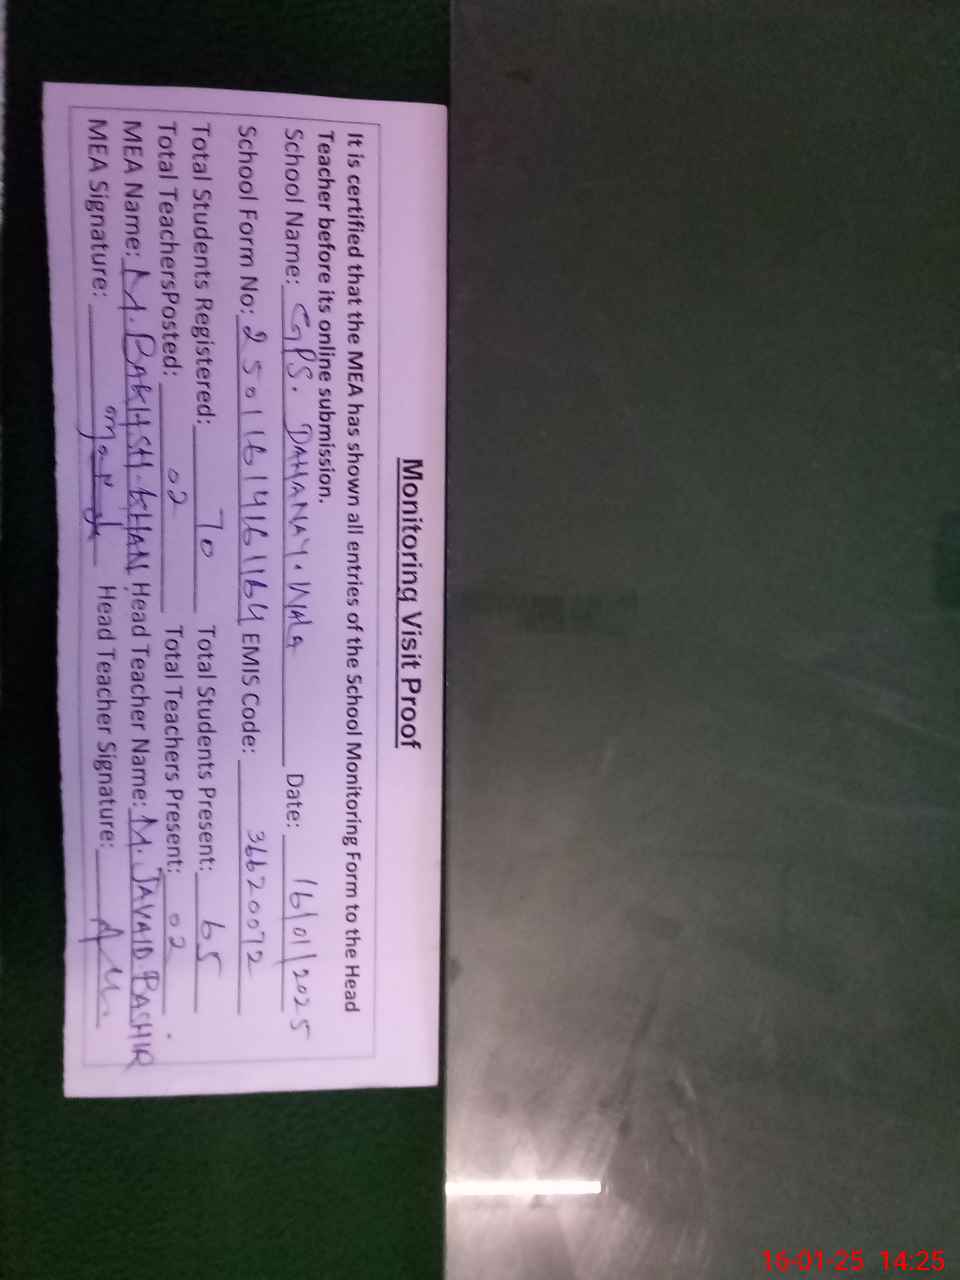 Monitoring Visit Proof
It is certified that the MEA has shown all entries of the School Monitoring Form to the Head
Teacher before its online submission.
School Name: GPS. DAHANAY. WALA Date: 16/01/2025
School Form No: EMIS Code: 36620072
Total Students Registered: 70 Total Students Present: 65
Total TeachersPosted: 02 Total Teachers Present: 02
MEA Name: M. BAKHSH. KHAN Head Teacher Name: M. JAVAID. BASHIR
MEA Signature: Head Teacher Signature:
16-01-25 14:25